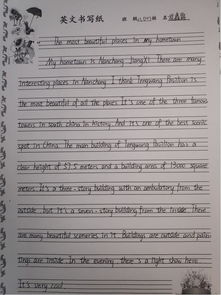 英文书写纸
The most beautiful places in my hometown
My hometown is Nanchang, JiangXi. There are many
interesting places in Nanchang. I think Tengwang Pavilion is
the most beautiful of all the places. It's one of the three famous
towers in south china in history. And it's one of the best scenic
spot in China. The main building of Tengwang Pavilion has a
clear height of 57.5 meters and a building area of 13000 square
meters. It's a three-story building with an ambulatory from the
outside, but it's a seven-story building from the inside. There
are many beautiful sceneries in it. Buildings are outside and pain
tings are inside. In the evening, there's a light show here.
It's very cool.